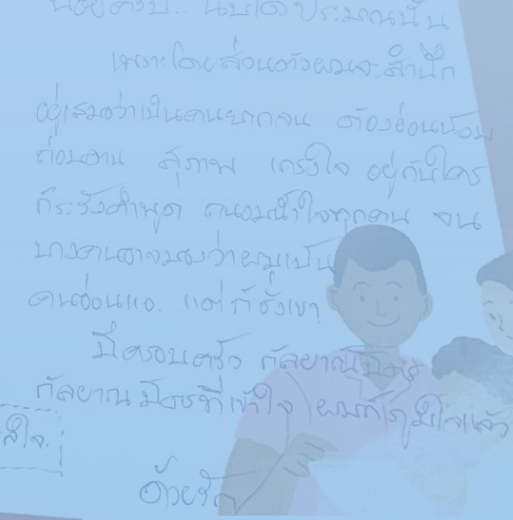 น้อยครับ.. นับได้ประมาณนั้น
เพราะโดยส่วนตัวผมจะสำนึก
อยู่เสมอว่าเป็นคนยากจน ต้องอ่อนน้อม
ถ่อมตน สุภาพ เกรงใจ อยู่กับใคร
ก็ระวังคำพูด ถนอมน้ำใจทุกคน จน
บางคนอาจมองว่าผมเป็น
คนอ่อนแอ. แต่ก็ช่างเขา
มีครอบครัว กัลยาณมิตร
กัลยาณมิตรที่เข้าใจ ผมก็ภูมิใจแล้ว
ด้วยรัก